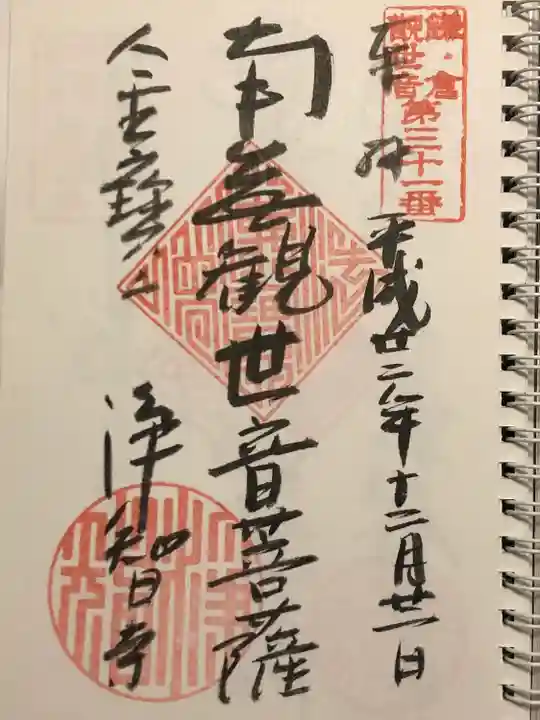 鎌倉
観世音第三十一番
奉拝 平成廿二年十二月廿一日
南無観世音菩薩
金宝山
浄智寺